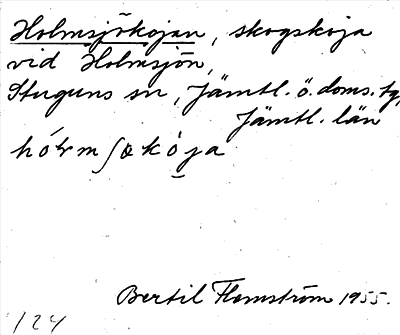 Holmsjökojan, skogskoja
vid Holmsjön,
Stuguns sn, Jämtl. ö. doms. tg,
Jämtl. län
Bertil Flemström 1955.
124